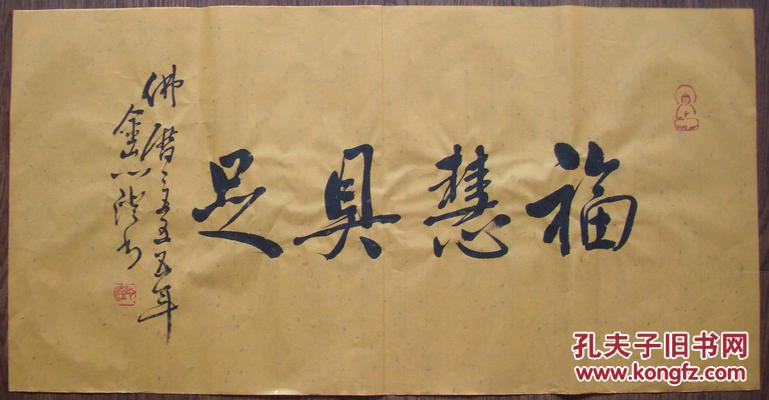 福慧具足
佛曆二五五五年
金山心澄书
孔夫子旧书网
www.kongfz.com